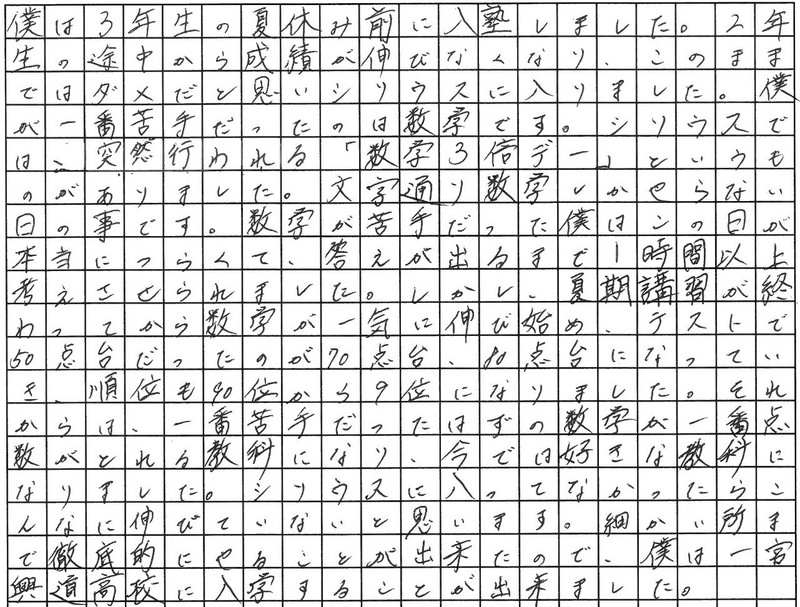 僕は3年生の夏休み前に入塾しました。2年
生の途中から成績が伸びなくなり、このまま
ではダメだと思いシリウスに入りました。僕
が一番苦手だったのは数学です。シリウスで
は、突然行われる「数学3倍デー」というも
のがありました。文字通り数学しかやらない
日の事です。数学が苦手だった僕はこの日が
本当につらくて、答えが出るまで1時間以上
考えさせられました。しかし、夏期講習が終
わってから数学が一気に伸び始め、テストで
50点台だったのが70点台、80点台になってい
き、順位も90位から9位になりました。それ
からは、一番苦手だったはずの数学が一番点
数がとれる教科になり、今では好きな教科に
なりました。シリウスに入ってなかったらこ
んなに伸びていないと思います。細かい所ま
で徹底的にやることが出来たので、僕は一宮
興道高校に入学することが出来ました。